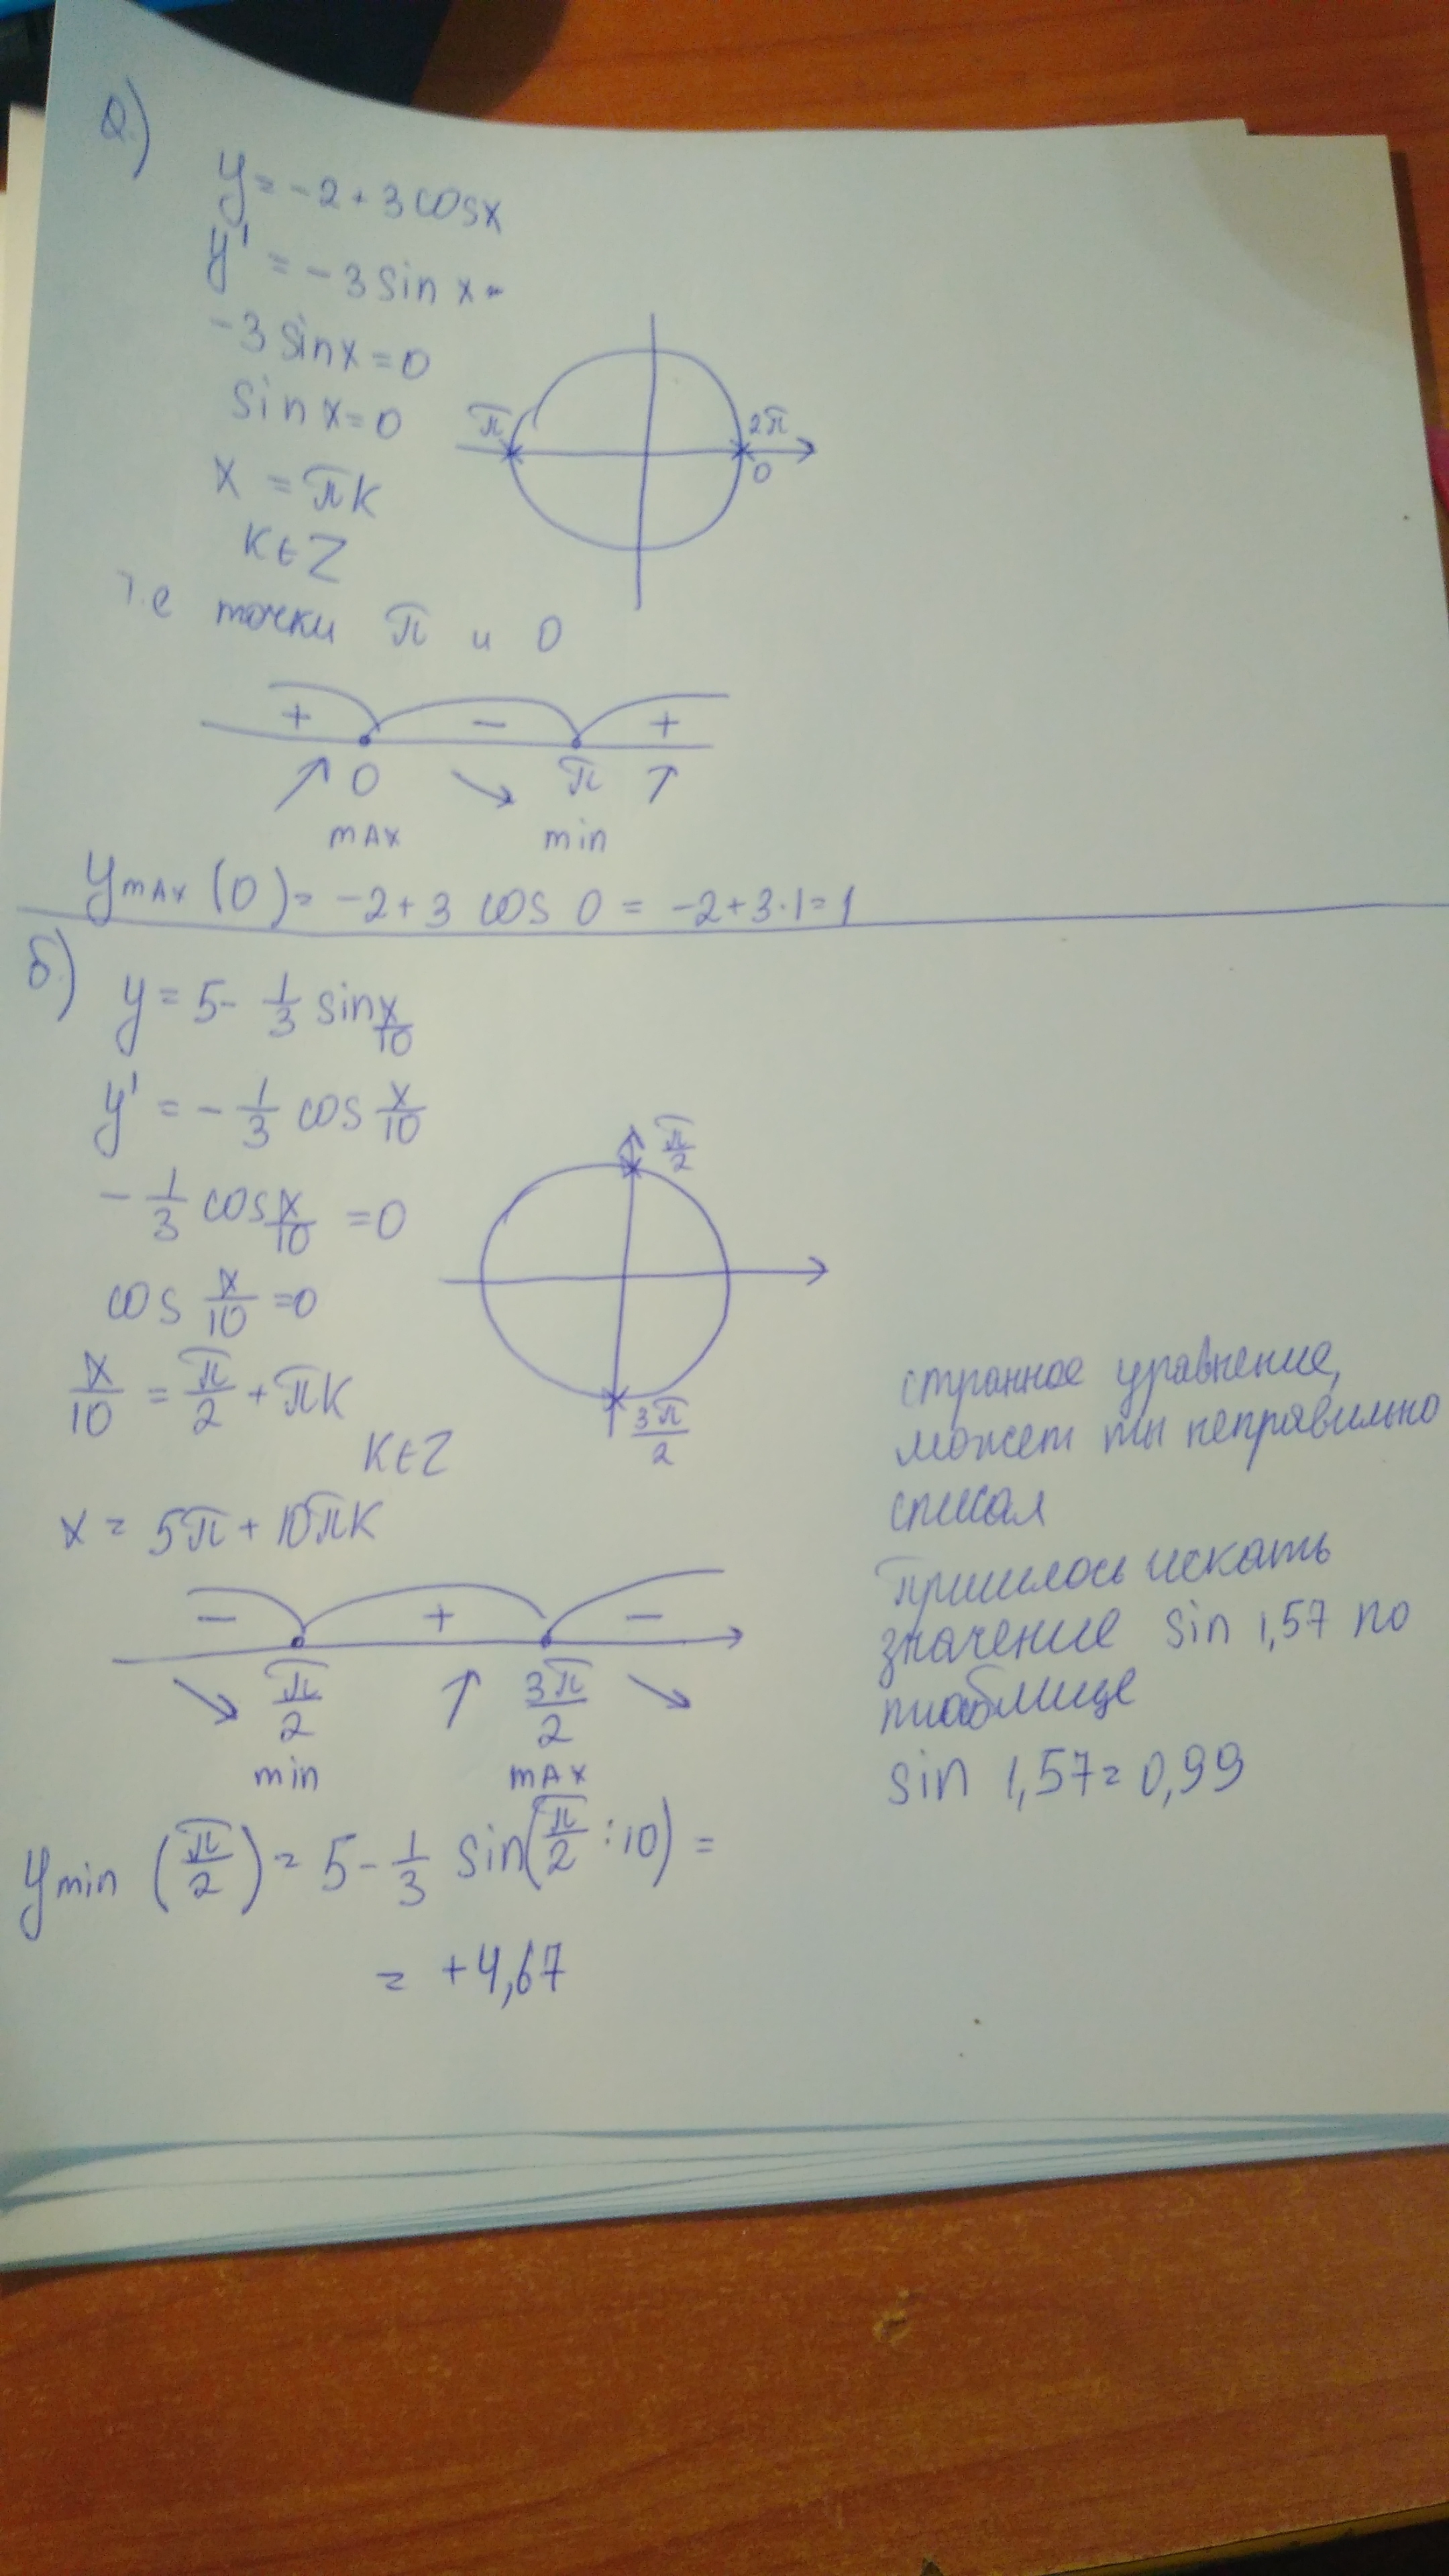 а)
y = -2 + 3 cos x
y' = -3 sin x
-3 sin x = 0
sin x = 0
π
2π
0
x = πk
k ∈ Z
т.е точки π и 0
+ - +
0 π
max min
y max (0) = -2 + 3 cos 0 = -2 + 3·1 = 1
б)
y = 5 - 1/3 sin x/10
y' = - 1/3 cos x/10
π/2
- 1/3 cos x/10 = 0
cos x/10 = 0
x/10 = π/2 + πk
3π/2
k ∈ Z
x = 5π + 10πk
- + -
π/2 3π/2
min max
y min (π/2) = 5 - 1/3 sin(π/2 : 10) =
= +4,67
странное уравнение,
может ты неправильно
списал
Пришлось искать
значение sin 1,57 по
таблице
sin 1,57 = 0,99